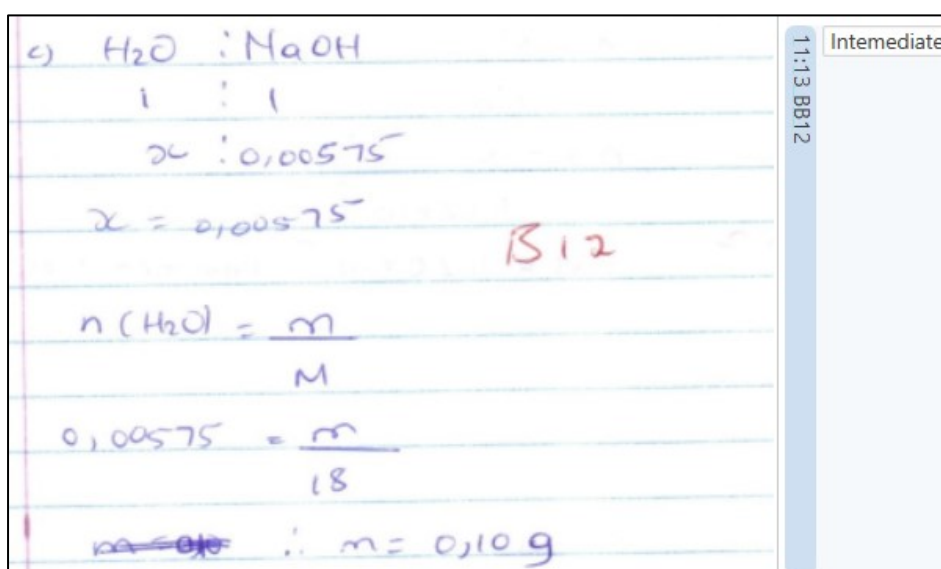 c) H2O : NaOH
1 : 1
x : 0,00575
x = 0,00575
B12
n (H2O) = m
M
0,00575 = m
18
∴ m = 0,10 g
11:13 BB12
Intemediate